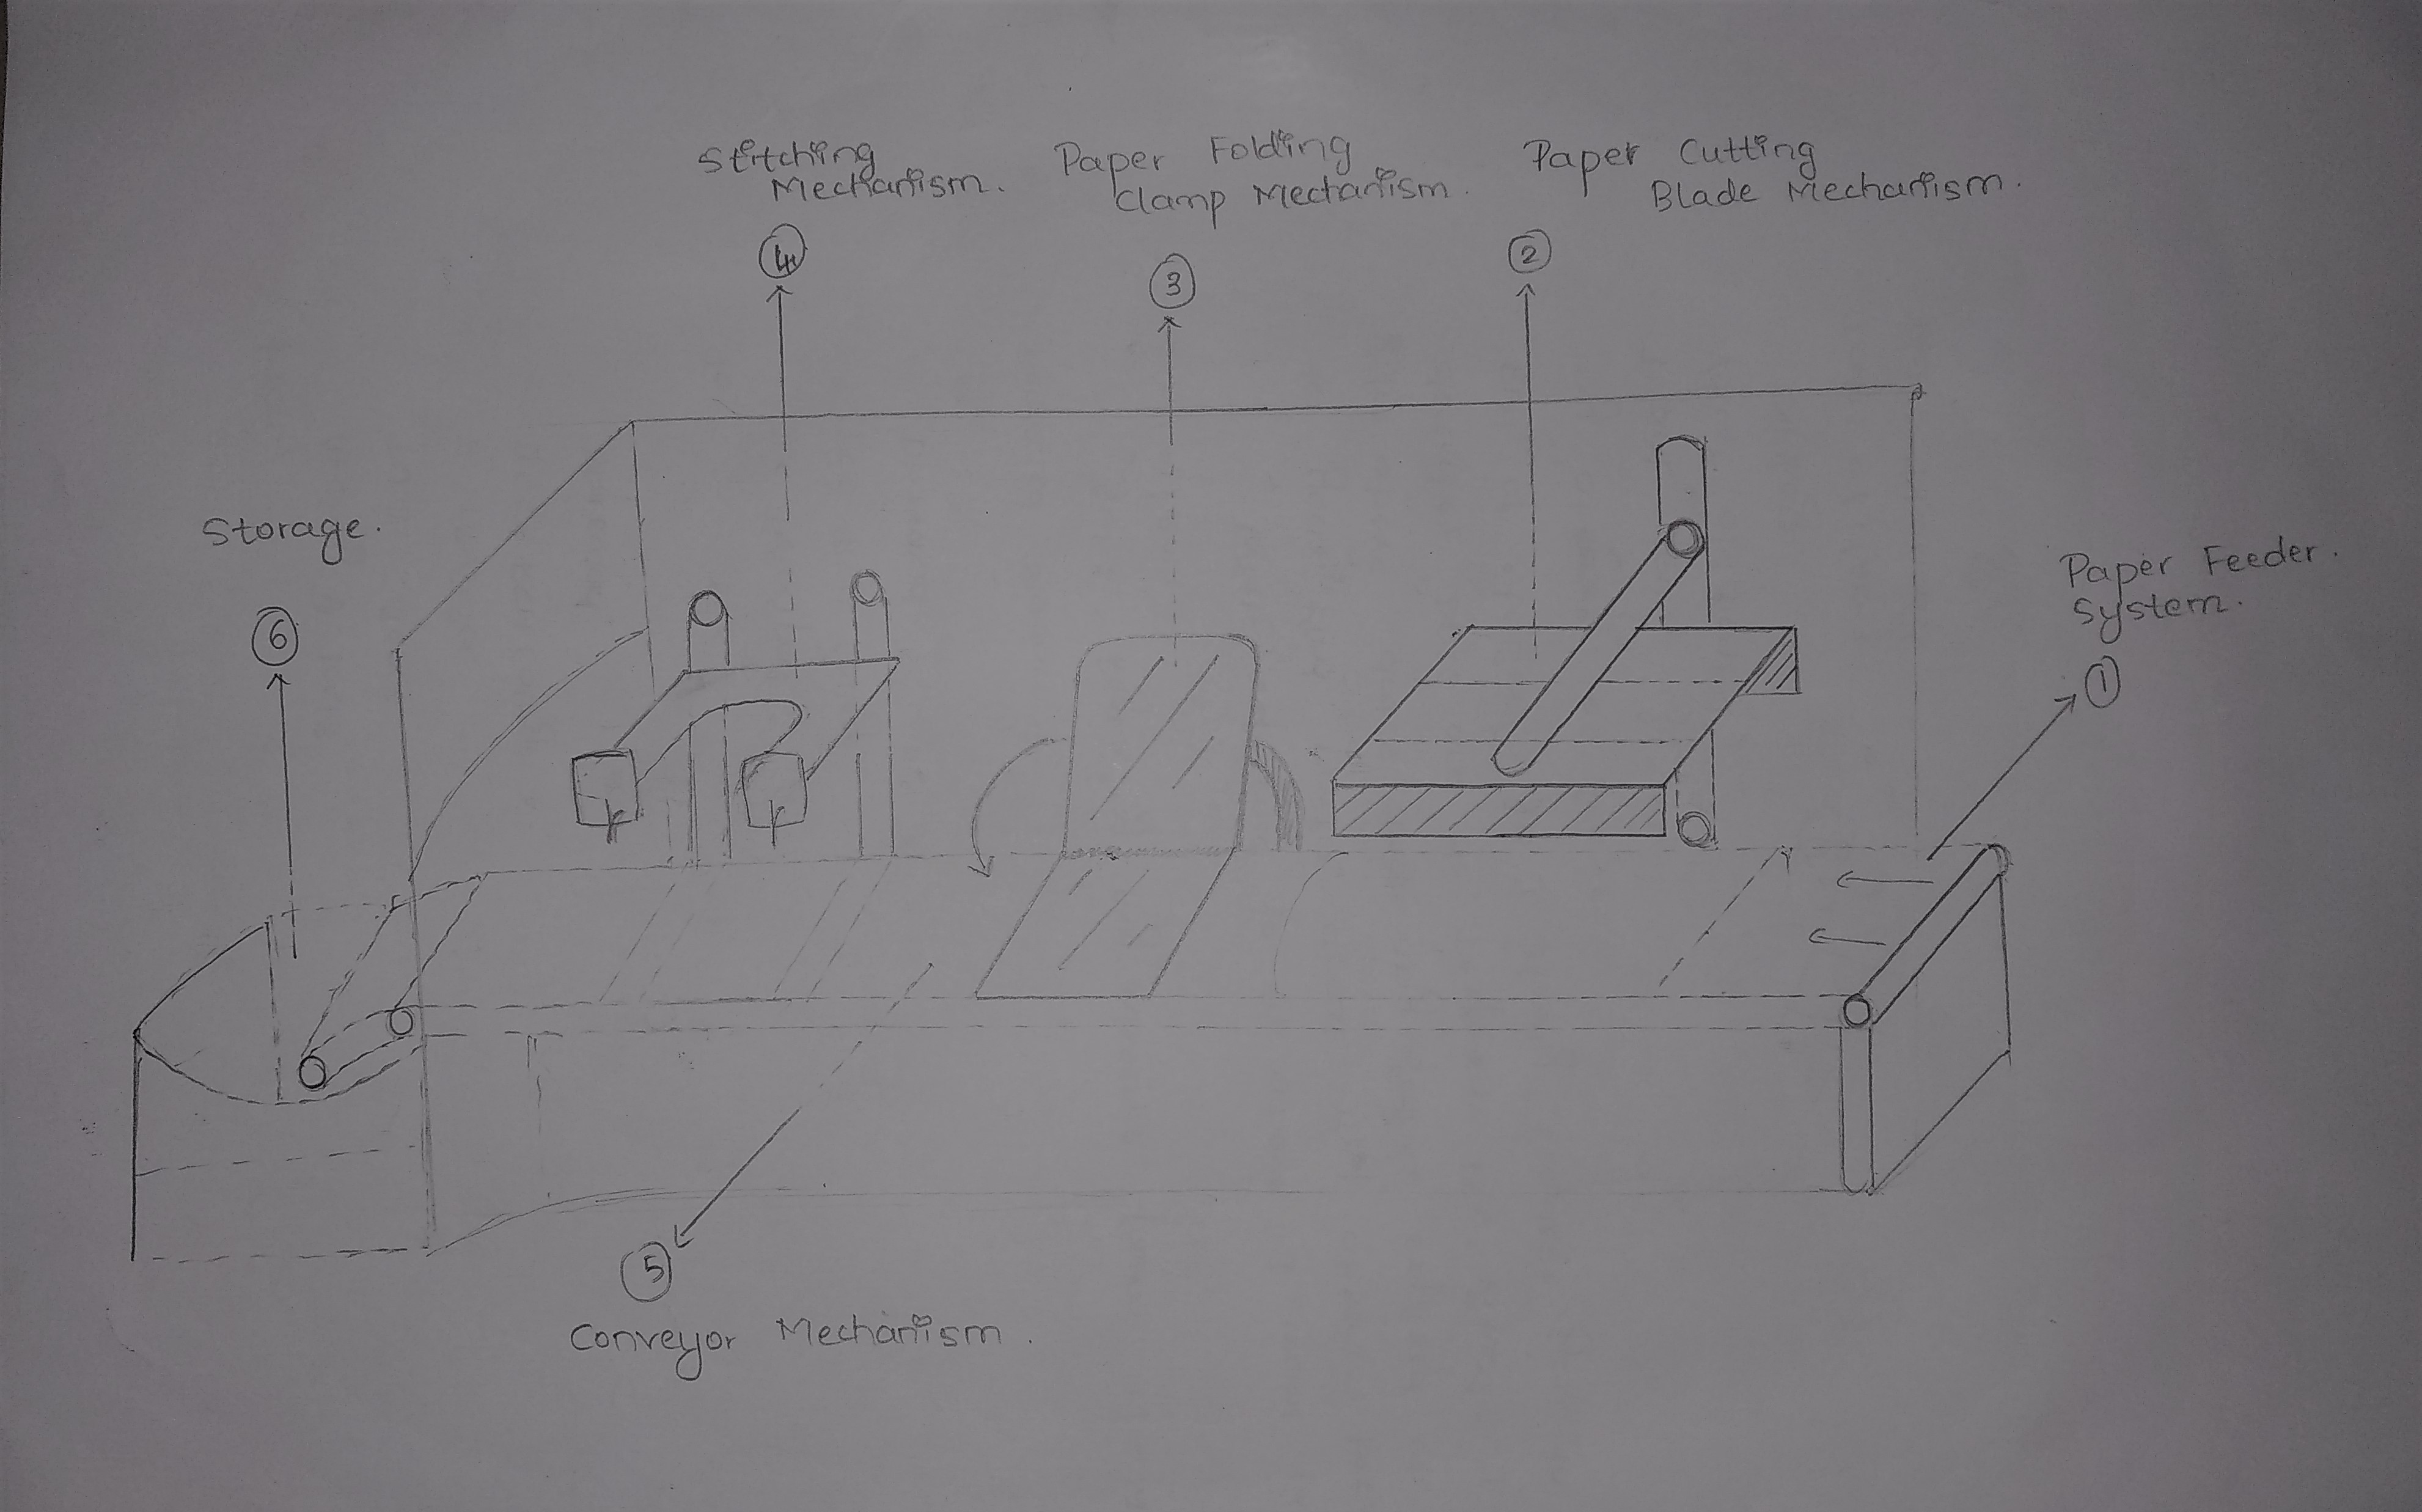 Stitching
Mechanism.
4
Paper Folding
Clamp Mechanism.
3
Paper Cutting
Blade Mechanism.
2
Storage.
6
Paper Feeder.
System.
1
5
Conveyor Mechanism.